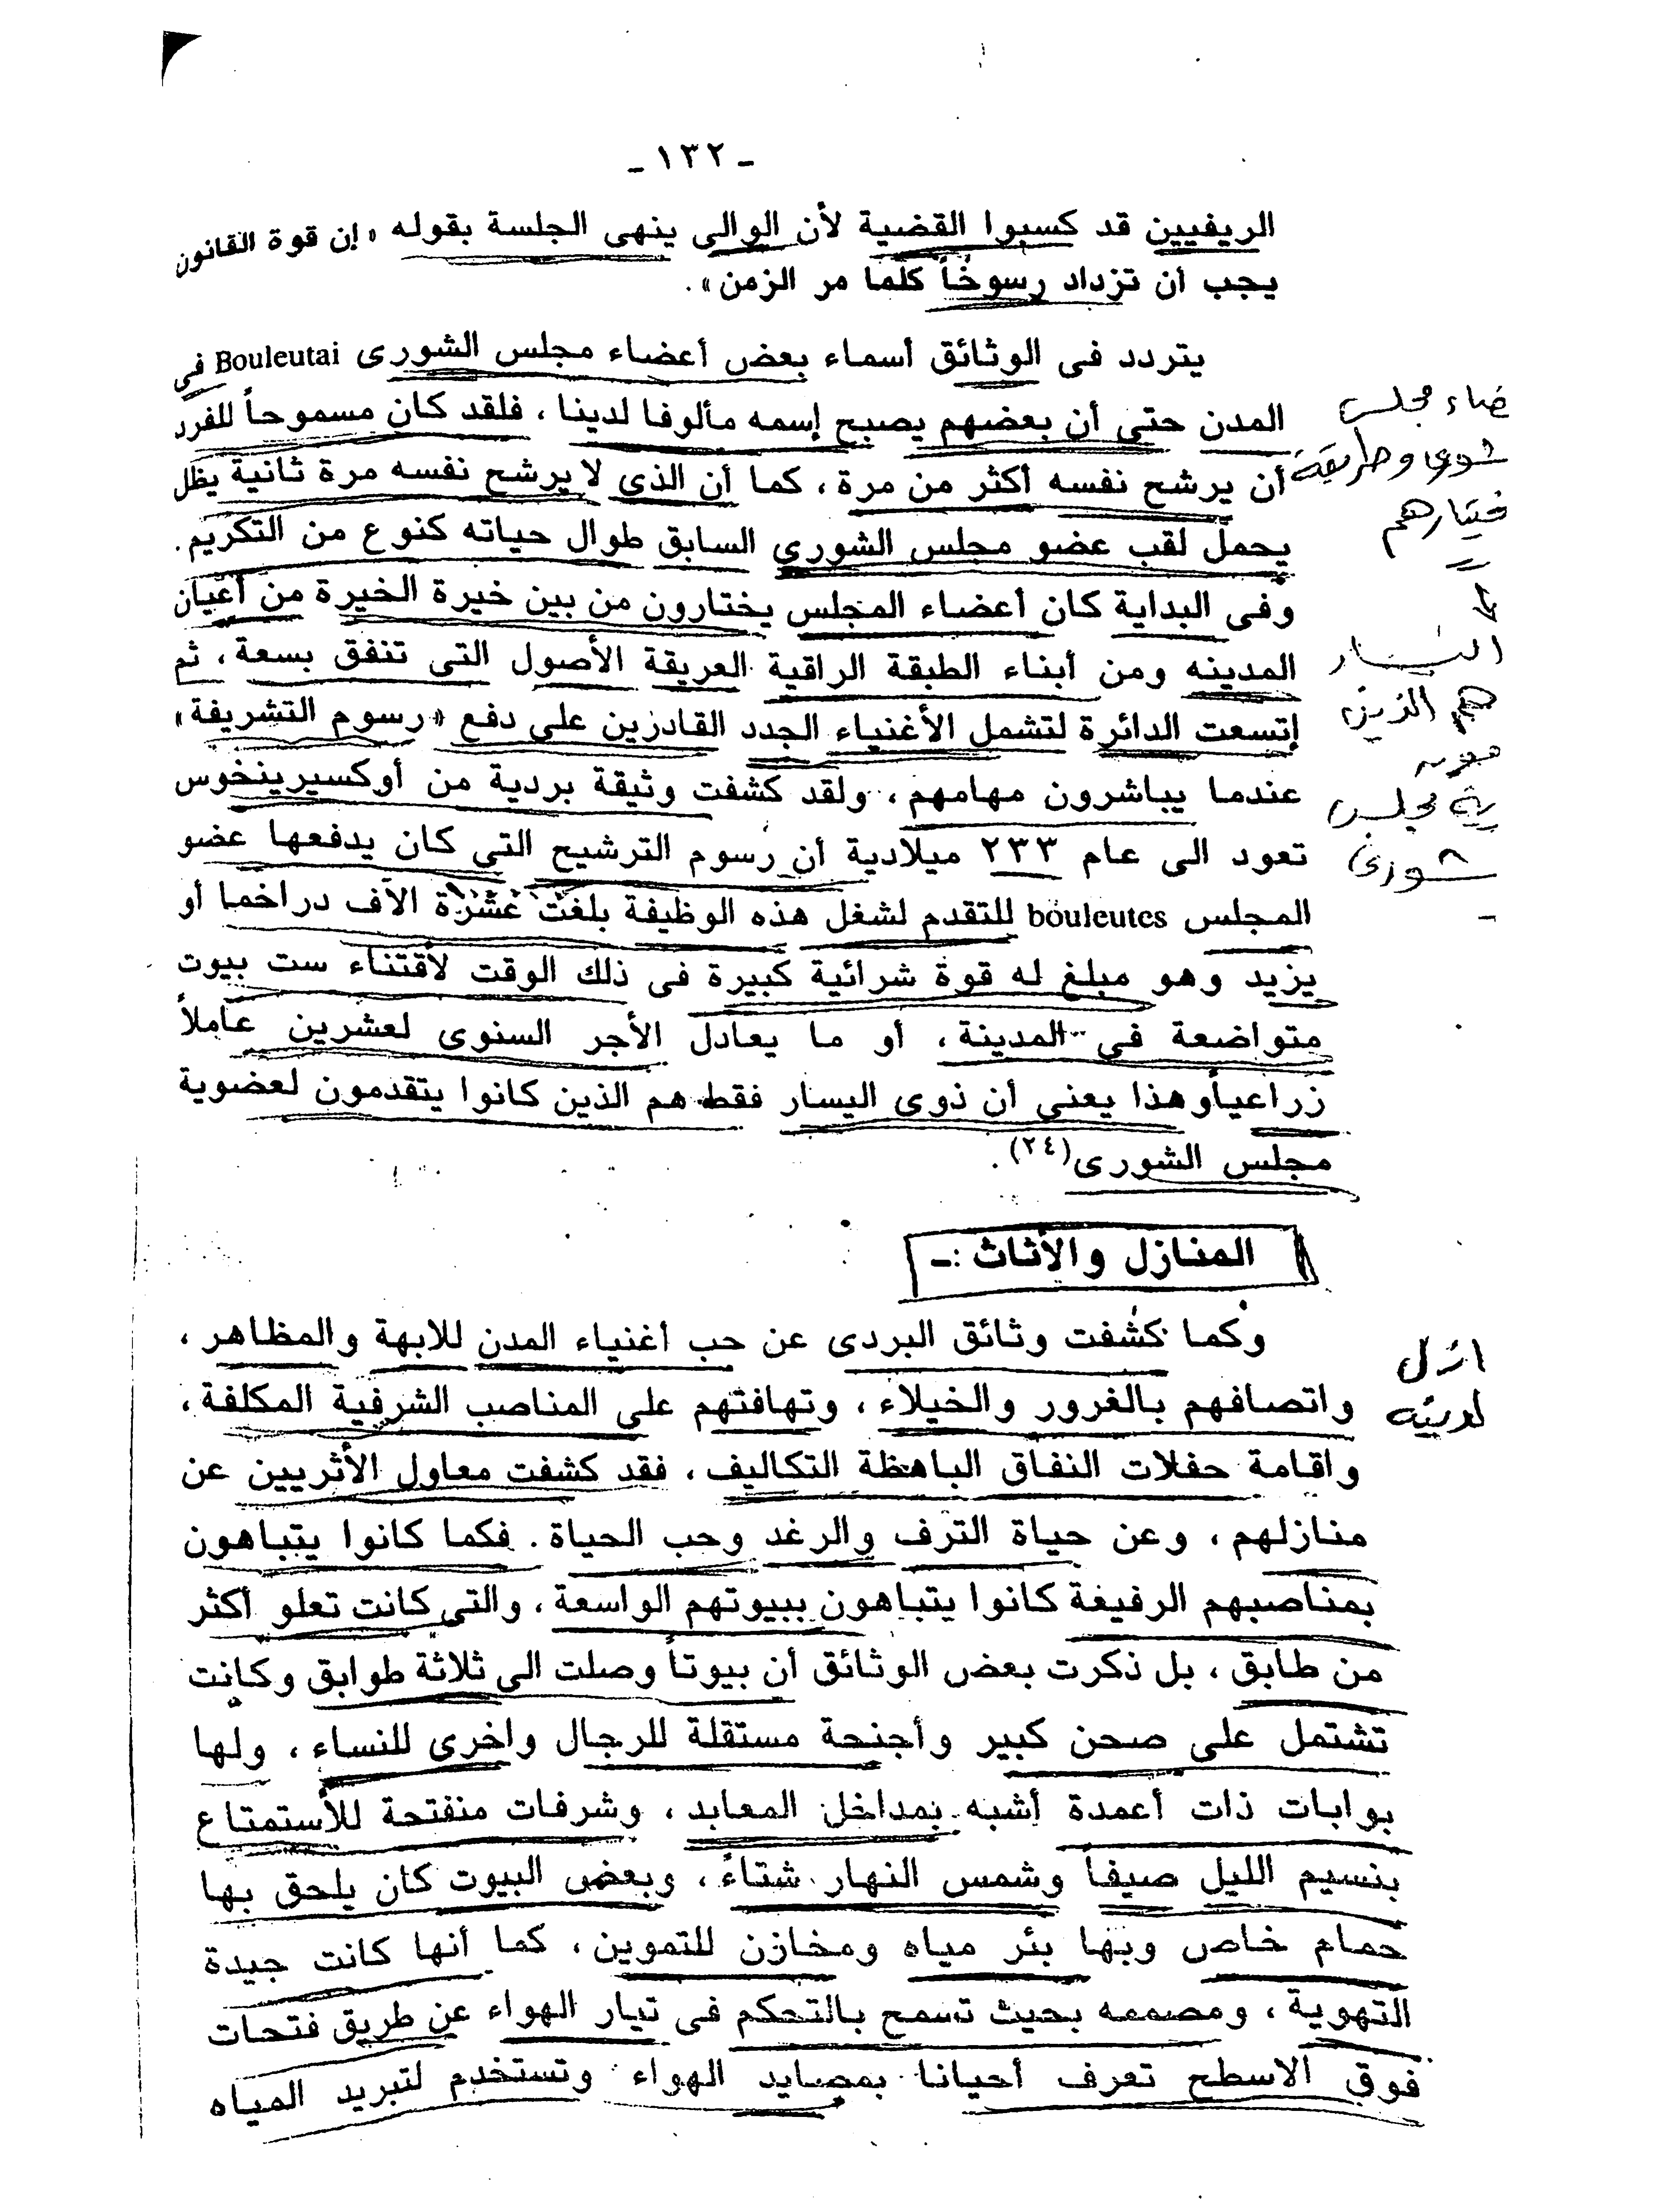 ـ ١٣٢ ـ
الريفيين قد كسبوا القضية لأن الوالى ينهى الجلسة بقوله « إن قوة القانون
يجب أن تزداد رسوخاً كلما مر الزمن » .
يتردد فى الوثائق أسماء بعض أعضاء مجلس الشورى Bouleutai فى
المدن حتى أن بعضهم يصبح إسمه مألوفا لدينا ، فلقد كان مسموحاً للفرد
أن يرشح نفسه أكثر من مرة ، كما أن الذى لا يرشح نفسه مرة ثانية يظل
يحمل لقب عضو مجلس الشورى السابق طوال حياته كنوع من التكريم .
وفى البداية كان أعضاء المجلس يختارون من بين خيرة الخيرة من أعيان
المدينه ومن أبناء الطبقة الراقية العريقة الأصول التى تنفق بسعة ، ثم
إتسعت الدائرة لتشمل الأغنياء الجدد القادرين على دفع « رسوم التشريفة »
عندما يباشرون مهامهم ، ولقد كشفت وثيقة بردية من أوكسيرينخوس
تعود الى عام ٢٣٣ ميلادية أن رسوم الترشيح التي كان يدفعها عضو
المجلس bouleutes للتقدم لشغل هذه الوظيفة بلغت عشرة الآف دراخما أو
يزيد وهو مبلغ له قوة شرائية كبيرة فى ذلك الوقت لأقتناء ست بيوت
متواضعة في المدينة ، أو ما يعادل الأجر السنوى لعشرين عاملاً
زراعياً وهذا يعنى أن ذوى اليسار فقط هم الذين كانوا يتقدمون لعضوية
مجلس الشورى (٢٤) .
ضاء مجلس
شورى وطريقة
ختيارهم
اليسار
هم الذين
ية مجلس
شورى
المنازل والأثاث :ـ
وكما كشفت وثائق البردى عن حب أغنياء المدن للابهة والمظاهر ،
واتصافهم بالغرور والخيلاء ، وتهافتهم على المناصب الشرفية المكلفة ،
واقامة حفلات النفاق الباهظة التكاليف ، فقد كشفت معاول الأثريين عن
منازلهم ، وعن حياة الترف والرغد وحب الحياة . فكما كانوا يتباهون
بمناصبهم الرفيعة كانوا يتباهون ببيوتهم الواسعة ، والتي كانت تعلو أكثر
من طابق ، بل ذكرت بعض الوثائق أن بيوتاً وصلت الى ثلاثة طوابق وكانت
تشتمل على صحن كبير وأجنحة مستقلة للرجال واخرى للنساء ، ولها
بوابات ذات أعمدة أشبه بمداخل المعابد ، وشرفات منفتحة للأستمتاع
بنسيم الليل صيفاً وشمس النهار شتاءً ، وبعض البيوت كان يلحق بها
حمام خاص وبها بئر مياه ومخازن للتموين ، كما أنها كانت جيدة
التهوية ، ومصممه بحيث تسمح بالتحكم فى تيار الهواء عن طريق فتحات
فوق الاسطح تعرف أحيانا بمصايد الهواء وتستخدم لتبريد المياه